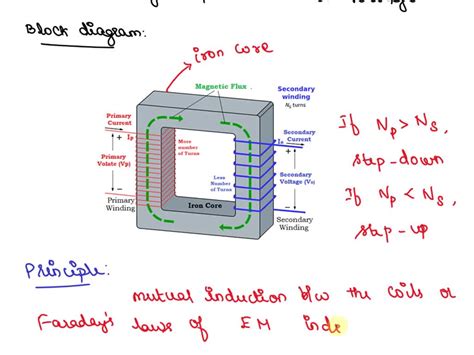 Block diagram:
iron core
Magnetic Flux
Secondary
winding
Ns turns
Primary
Current
Ip
Secondary
Current
Is
More
number
of Turns
Primary
Volate (Vp)
Less
Number
of Turns
Secondary
Voltage (Vs)
Primary
Winding
Iron Core
Secondary
Winding
If Np > Ns,
step-down
If Np < Ns,
step-up
Principle:
mutual induction b/w the coils or
Faraday's laws of EM indu